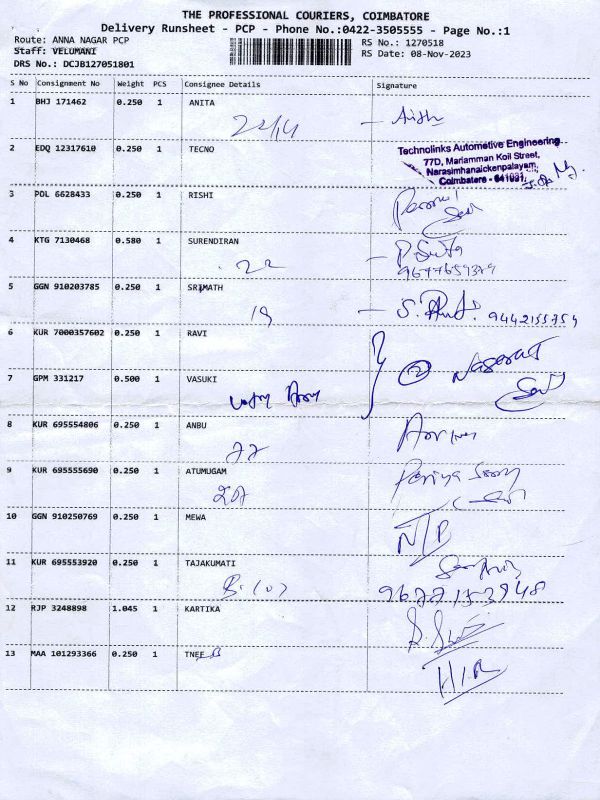 THE PROFESSIONAL COURIERS, COIMBATORE
Delivery Runsheet - PCP - Phone No.:0422-3505555 - Page No.:1
Route: ANNA NAGAR PCP
Staff: VELUMANI
DRS No.: DCJB127051801
RS No.: 1270518
RS Date: 08-Nov-2023
S No Consignment No Weight PCS Consignee Details Signature
1 BHJ 171462 0.250 1 ANITA
22/14
2 EDQ 12317610 0.250 1 TECNO
Technolinks Automotive Engineering
77D, Mariamman Koil Street,
Narasimhanaickenpalayam,
Coimbatore - 641031.
3 POL 6628433 0.250 1 RISHI
4 KTG 7130468 0.580 1 SURENDIRAN
22
9677659379
5 GGN 910203785 0.250 1 SRIMATH
19 9442155754
6 KUR 7000357602 0.250 1 RAVI
7 GPM 331217 0.500 1 VASUKI
2
8 KUR 695554806 0.250 1 ANBU
22
9 KUR 695555690 0.250 1 ATUMUGAM
207
10 GGN 910250769 0.250 1 MEWA
N/P
11 KUR 695553920 0.250 1 TAJAKUMATI
12 RJP 3248898 1.045 1 KARTIKA
13 MAA 101293366 0.250 1 TNEF B